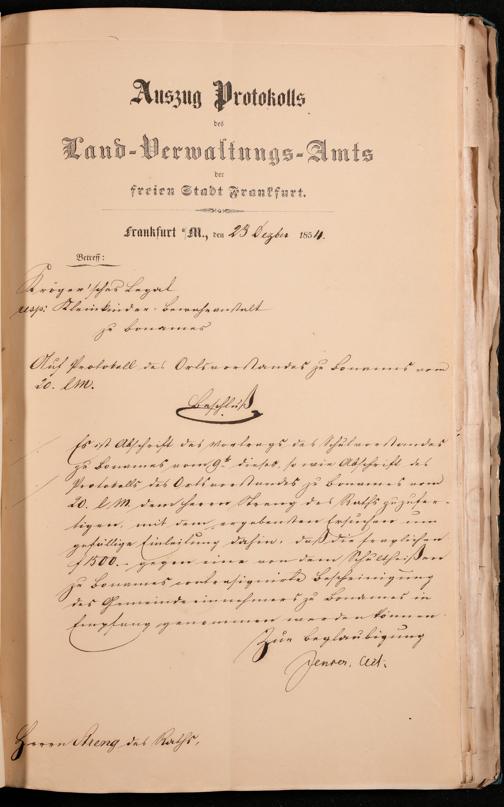 Auszug Protokolls
des
Land-Verwaltungs-Amts
der
freien Stadt Frankfurt.
Frankfurt a/M., den 23 Dezber 1854.
Betreff:
Kröger'sches Legat
resp: Kleinkinder-bewahranstalt
zu Bonames
Auf Protokoll des Ortsvorstandes zu Bonames vom
20. l.M.
Beschluß
Es ist Abschrift des Vortrags des Schulvorstandes
zu Bonames vom 9t dieses, so wie Abschrift des
Protokolls des Ortsvorstandes zu Bonames vom
20. l.M. dem Herrn Streng des Raths zuzufer-
tigen, mit dem ergebensten Ersuchen um
gefällige Einleitung dahin, daß die fraglichen
f 1500.- gegen eine von dem Schultheißen
zu Bonames contrasignirte Bescheinigung
des Gemeindeeinnehmers zu Bonames in
Empfang genommen werden können.
Zur Beglaubigung
Act.
Herrn Streng des Raths.